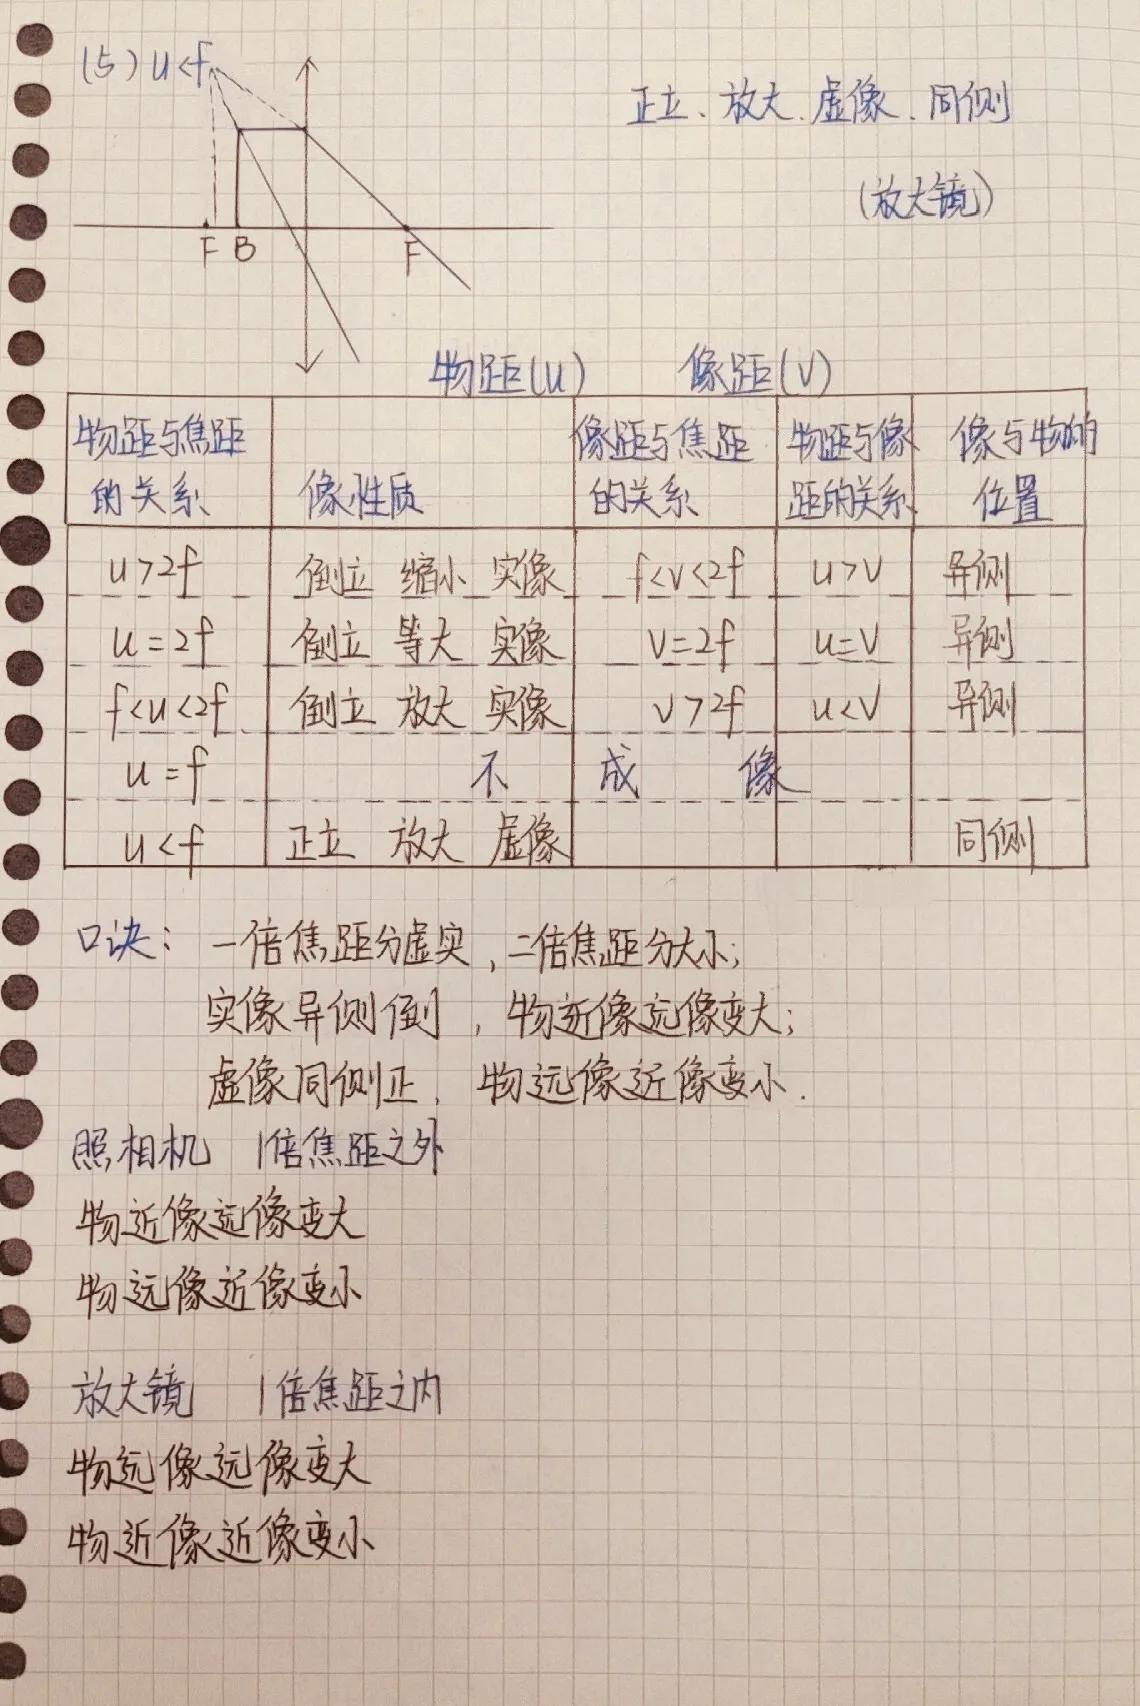 (5) u<f
正立、放大、虚像、同侧
(放大镜)
F B F
物距(u) 像距(v)
物距与焦距的关系 像性质 像距与焦距的关系 物距与像距的关系 像与物的位置
u>2f 倒立 缩小 实像 f<v<2f u>v 异侧
u=2f 倒立 等大 实像 v=2f u=v 异侧
f<u<2f 倒立 放大 实像 v>2f u<v 异侧
u=f 不 成 像
u<f 正立 放大 虚像 同侧
口诀: 一倍焦距分虚实,二倍焦距分大小;
实像异侧倒,物近像远像变大;
虚像同侧正,物远像近像变小.
照相机 1倍焦距之外
物近像远像变大
物远像近像变小
放大镜 1倍焦距之内
物远像远像变大
物近像近像变小